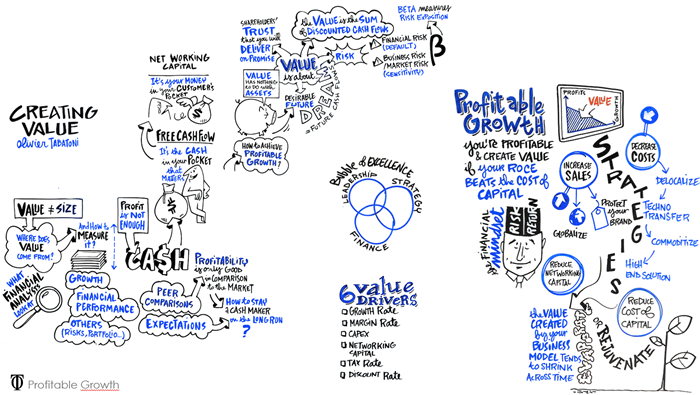 CREATING
VALUE
olivier TABATONI
NET WORKING
CAPITAL
It's your MONEY
in your CUSTOMER'S
POCKET
FREE CASH FLOW
It's the CASH
in your POCKET
that
MATTERS
SHAREHOLDERS'
TRUST
that you will
DELIVER
on PROMISE
the VALUE is the SUM
of DISCOUNTED CASH FLOW
VALUE
is about
RISK
VALUE
HAS NOTHING
to DO with
ASSETS
DESIRABLE
FUTURE
DREAMS
= FUTURE CASH FLOWS
HOW to ACHIEVE
PROFITABLE
GROWTH?
BETA measures
RISK EXPOSITION
β
FINANCIAL RISK
(DEFAULT)
BUSINESS RISK/
MARKET RISK
(SENSITIVITY)
VALUE ≠ SIZE
WHERE DOES
VALUE
COME FROM?
And How to
MEASURE
it?
WHAT
FINANCIAL
ANALYSTS
LOOK AT
GROWTH
FINANCIAL
PERFORMANCE
OTHERS
(RISKS, PORTFOLIO...)
PROFIT
is NOT
ENOUGH
CA$H
PEER
COMPARISONS
EXPECTATIONS
PROFITABILITY
is only GOOD
in COMPARISON
to the MARKET
HOW to STAY
a CASH MAKER
on the LONG RUN
?
Bubble of EXCELLENCE
LEADERSHIP
STRATEGY
FINANCE
6 value
DRIVERS
GROWTH RATE
MARGIN RATE
CAPEX
NETWORKING
CAPITAL
TAX RATE
DISCOUNT RATE
Profitable
GROWTH
you're PROFITABLE
& CREATE VALUE
if your ROCE
BEATS the COST of
CAPITAL
the FINANCIAL
mindset
RISK
RETURN
PROFITS
VALUE
GROWTH
STRATEGIES
INCREASE
SALES
GLOBALIZE
PROTECT
your
BRAND
DECREASE
COSTS
DELOCALIZE
TECHNO
TRANSFER
COMMODITIZE
HIGH
END SOLUTION
REDUCE
NETWORKING
CAPITAL
REDUCE
COST of
CAPITAL
the VALUE
CREATED
by your
BUSINESS
MODEL TENDS
to SHRINK
ACROSS TIME
EVAPORATE
or REJUVENATE
Profitable Growth